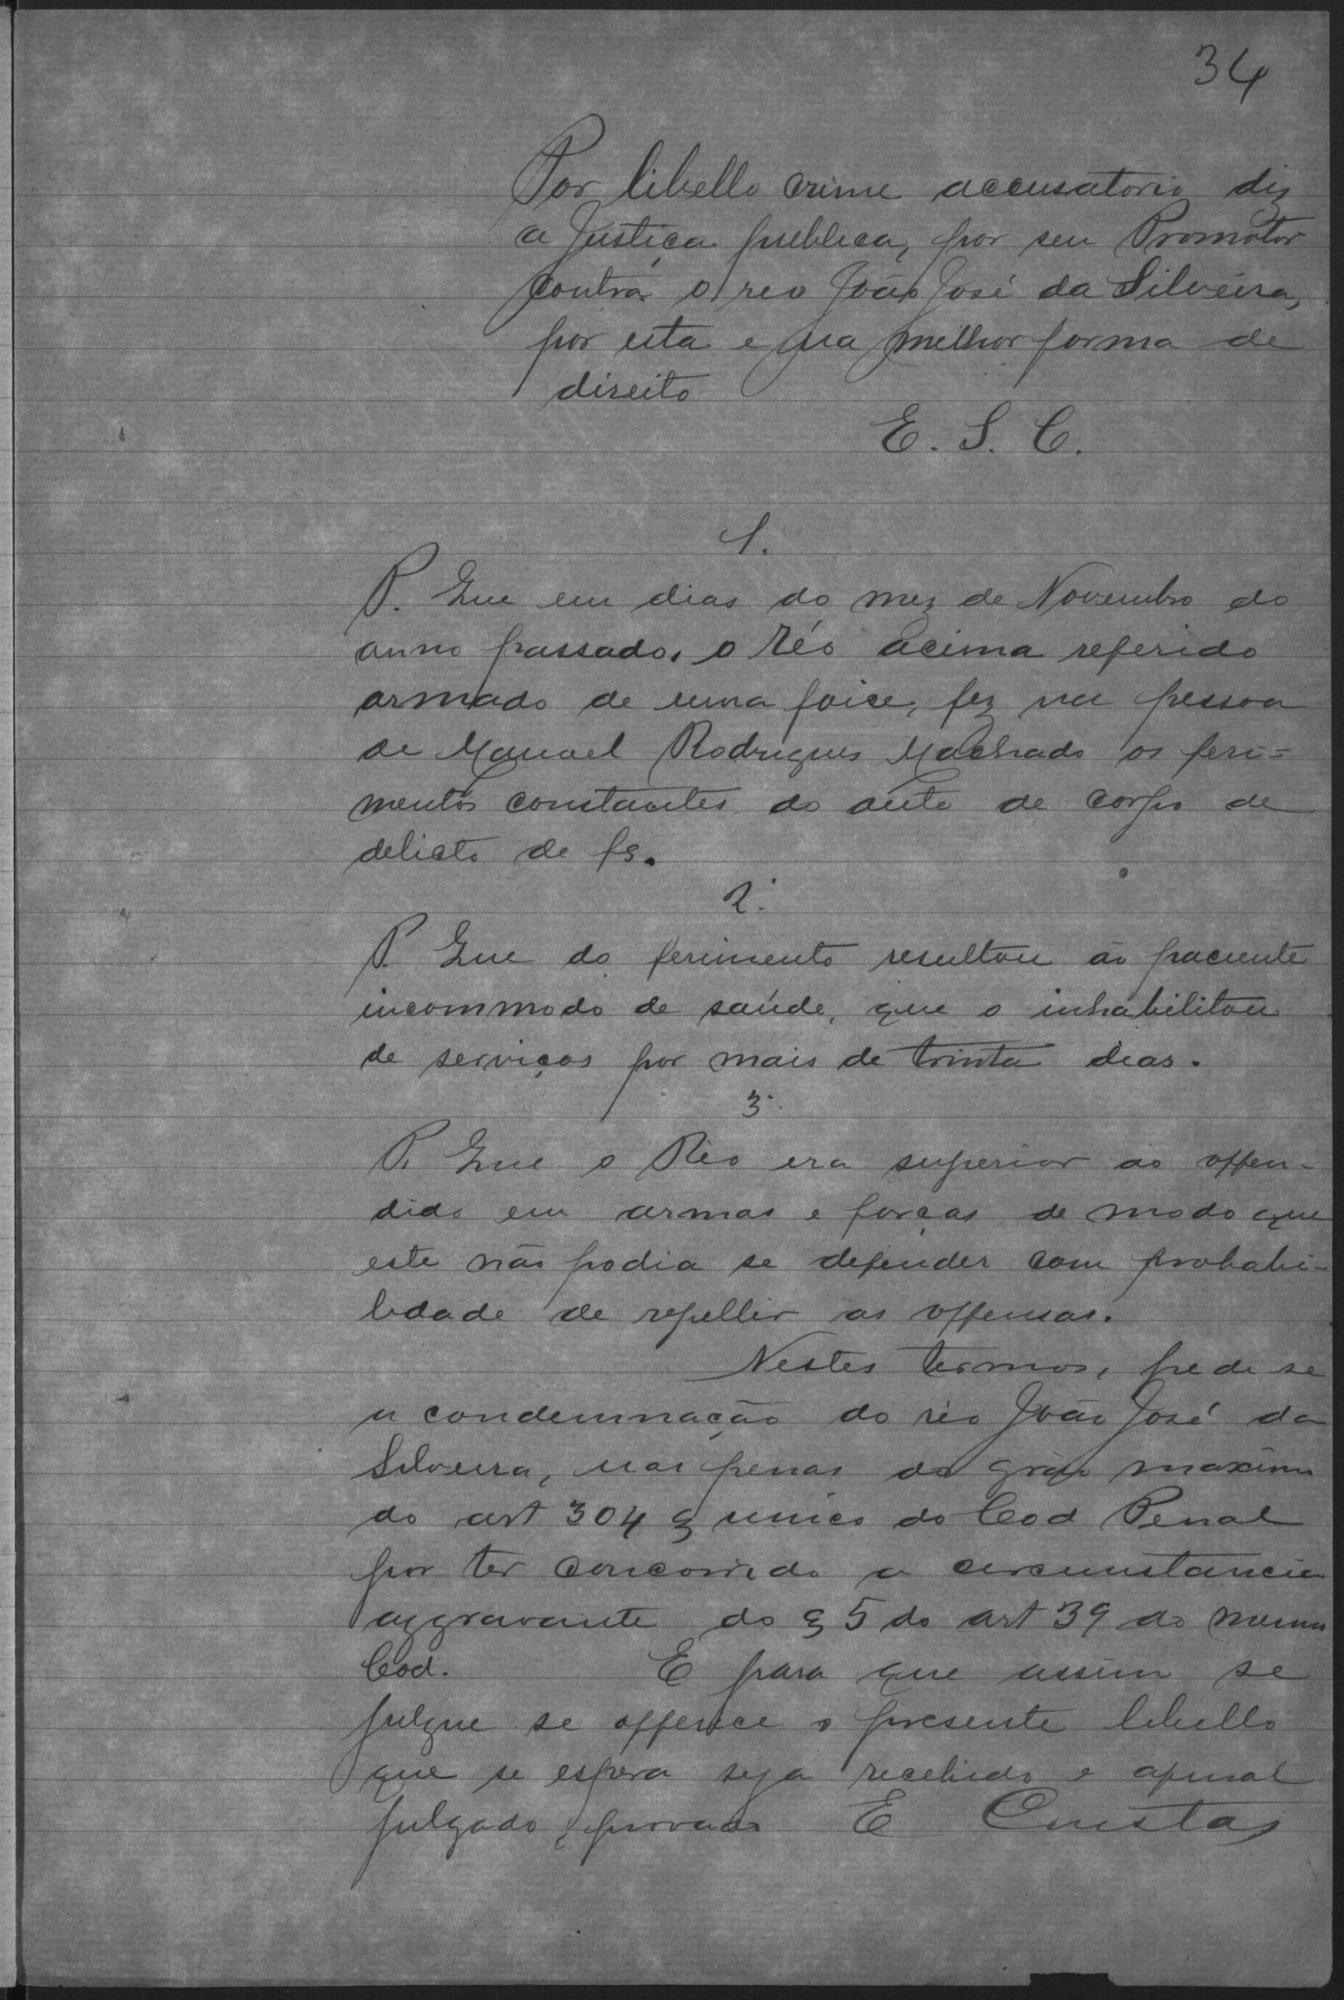 34
Por libello crime accusatorio diz
a Justiça publica, por seu Promotor
contra o reo João José da Silveira,
por esta e na melhor forma de
direito
E. S. C.
1.
P. Que em dias do mez de Novembro do
anno passado, o réo acima referido
armado de uma foice, fez na pessoa
de Manoel Rodrigues Machado os feri=
mentos constantes do auto de corpo de
delicto de fs.
2.
P. Que do ferimento resultou ao paciente
incommodo de saúde, que o inhabilitou
de serviços por mais de trinta dias.
3.
P. Que o Reo era superior ao offen-
dido em armas e forças de modo que
este não podia se defender com probabi-
lidade de repellir as offensas.
Nestes termos, pede se
a condemnação do réo João José da
Silveira, nas penas do gráo maximo
do art 304 § unico do Cod Penal
por ter concorrido a circumstancia
aggravante do § 5 do art 39 do mesmo
Cod. E para que assim se
julgue se offerece o presente libello
que se espera seja recebido e afinal
julgado provado E Custas